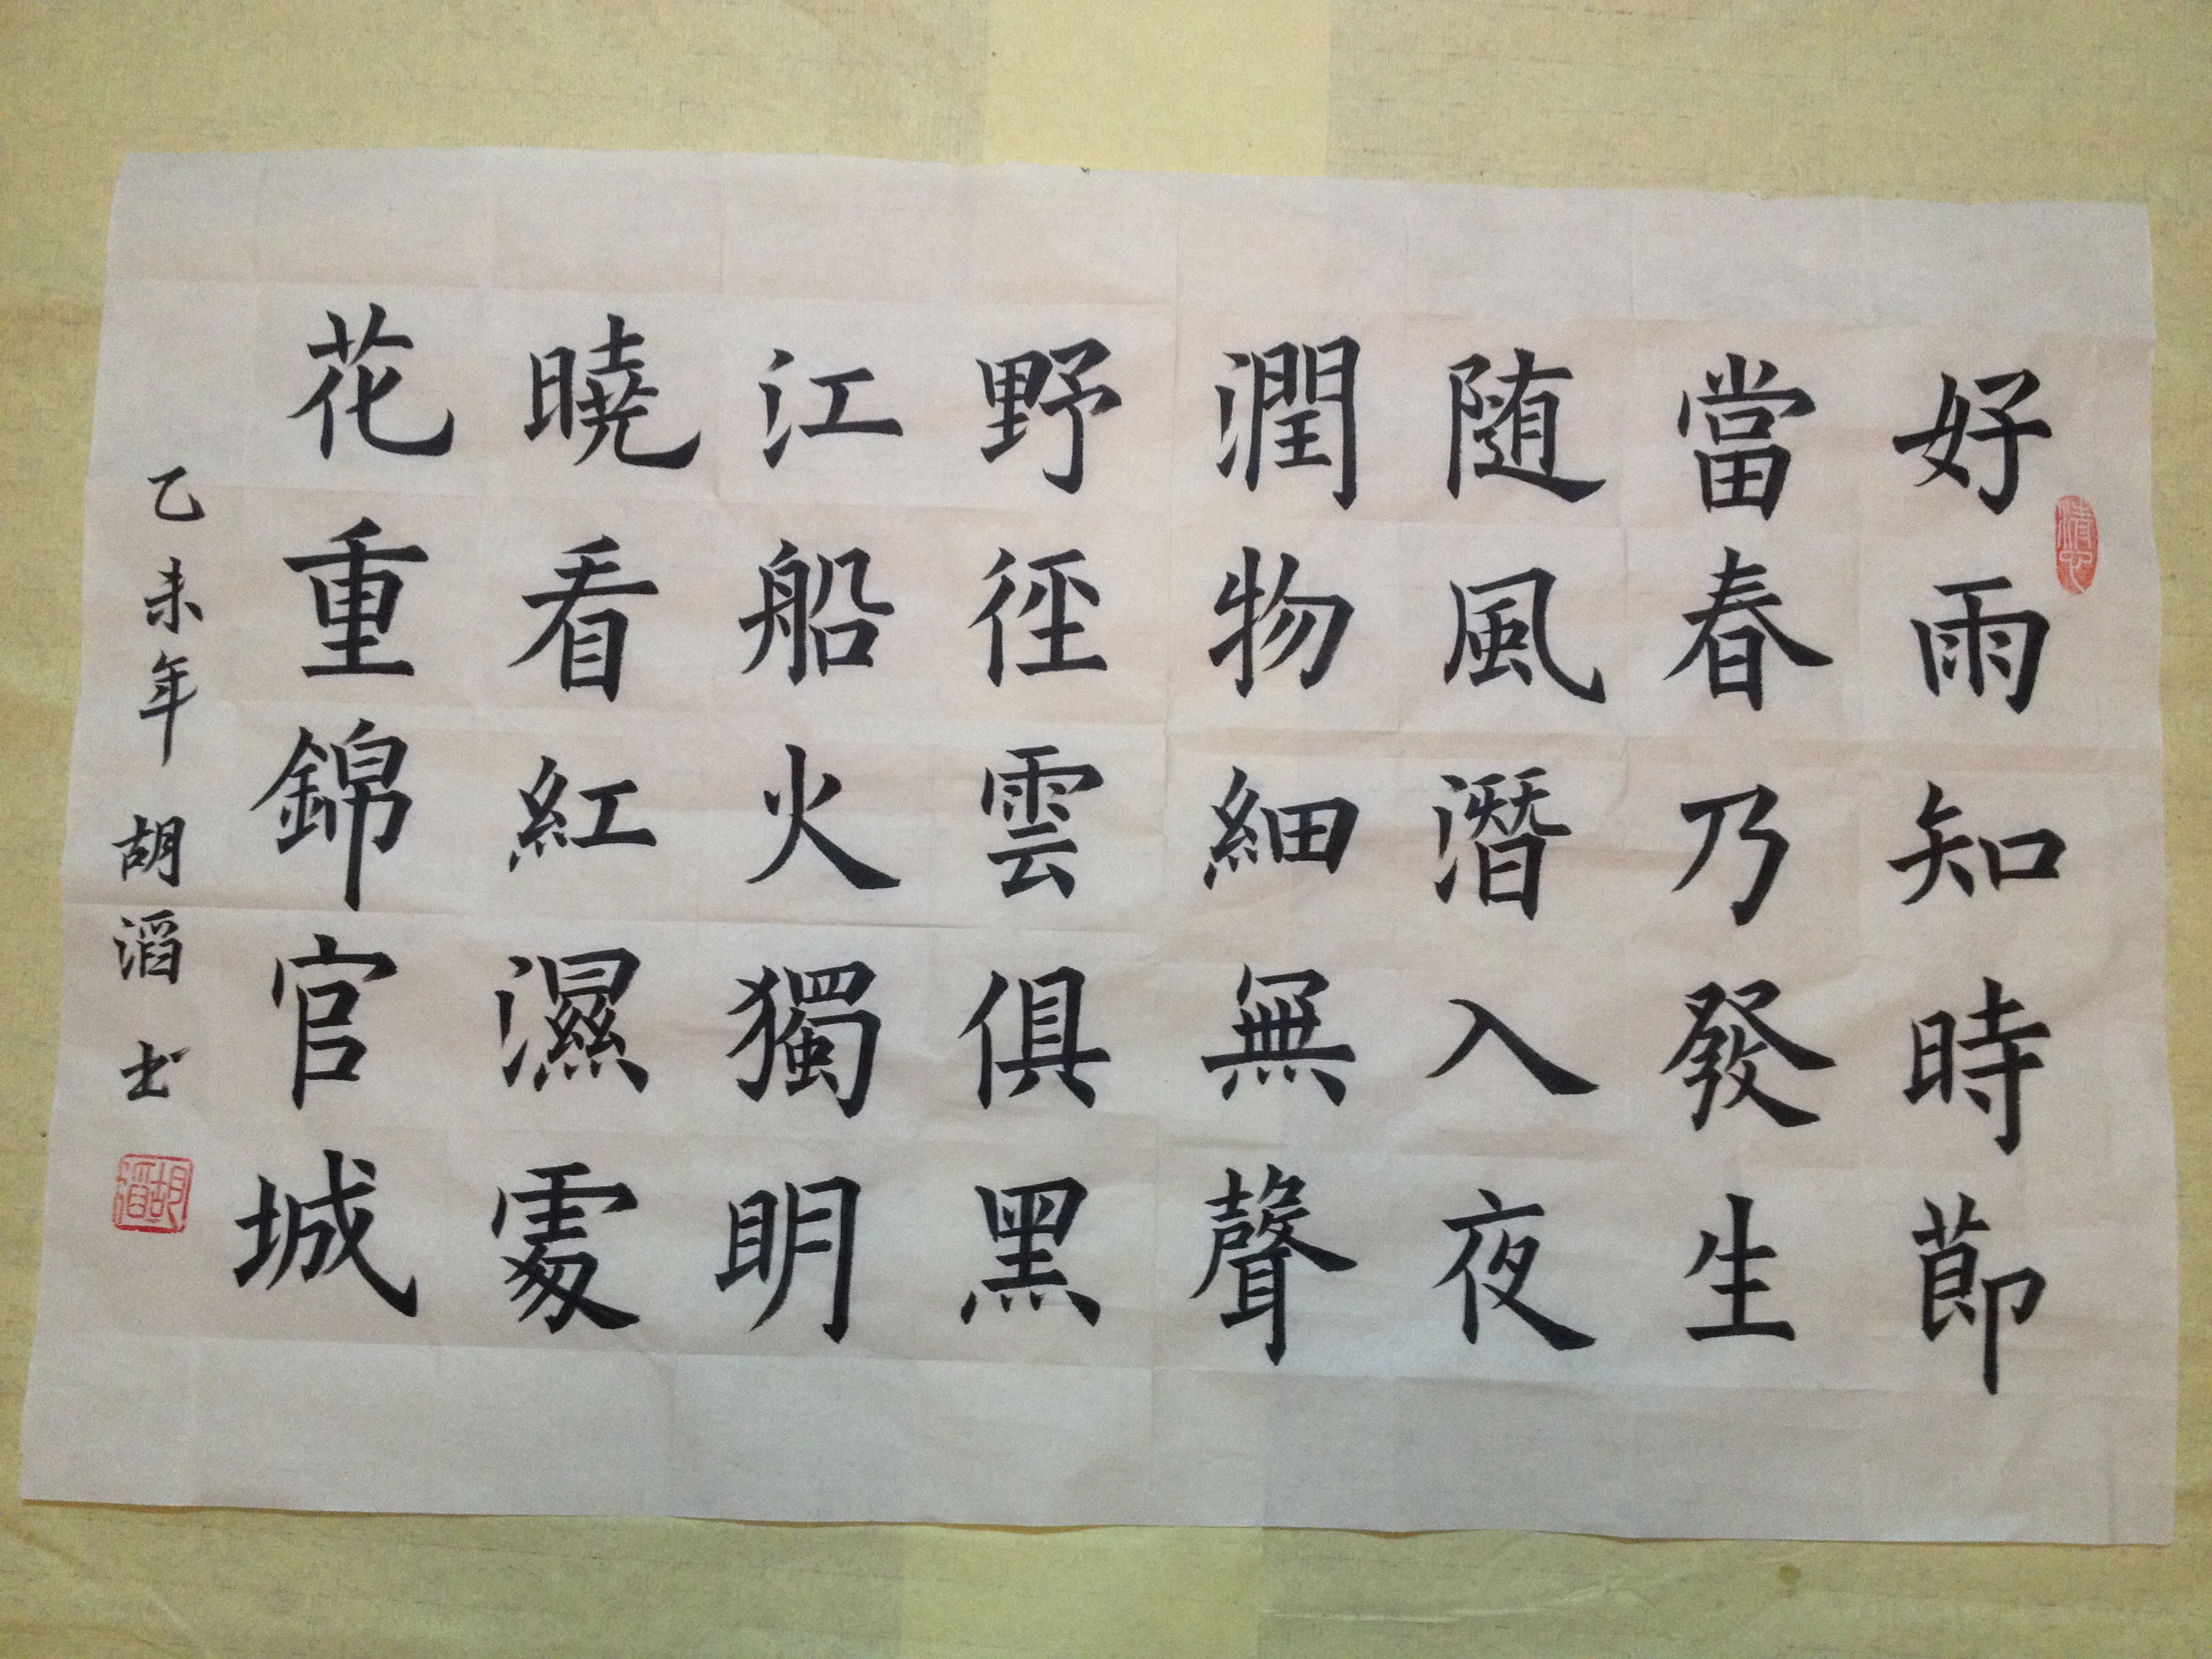 好雨知時節
當春乃發生
随風潛入夜
潤物細無聲
野徑雲俱黑
江船火獨明
曉看紅濕處
花重錦官城
乙未年 胡滔书
胡滔